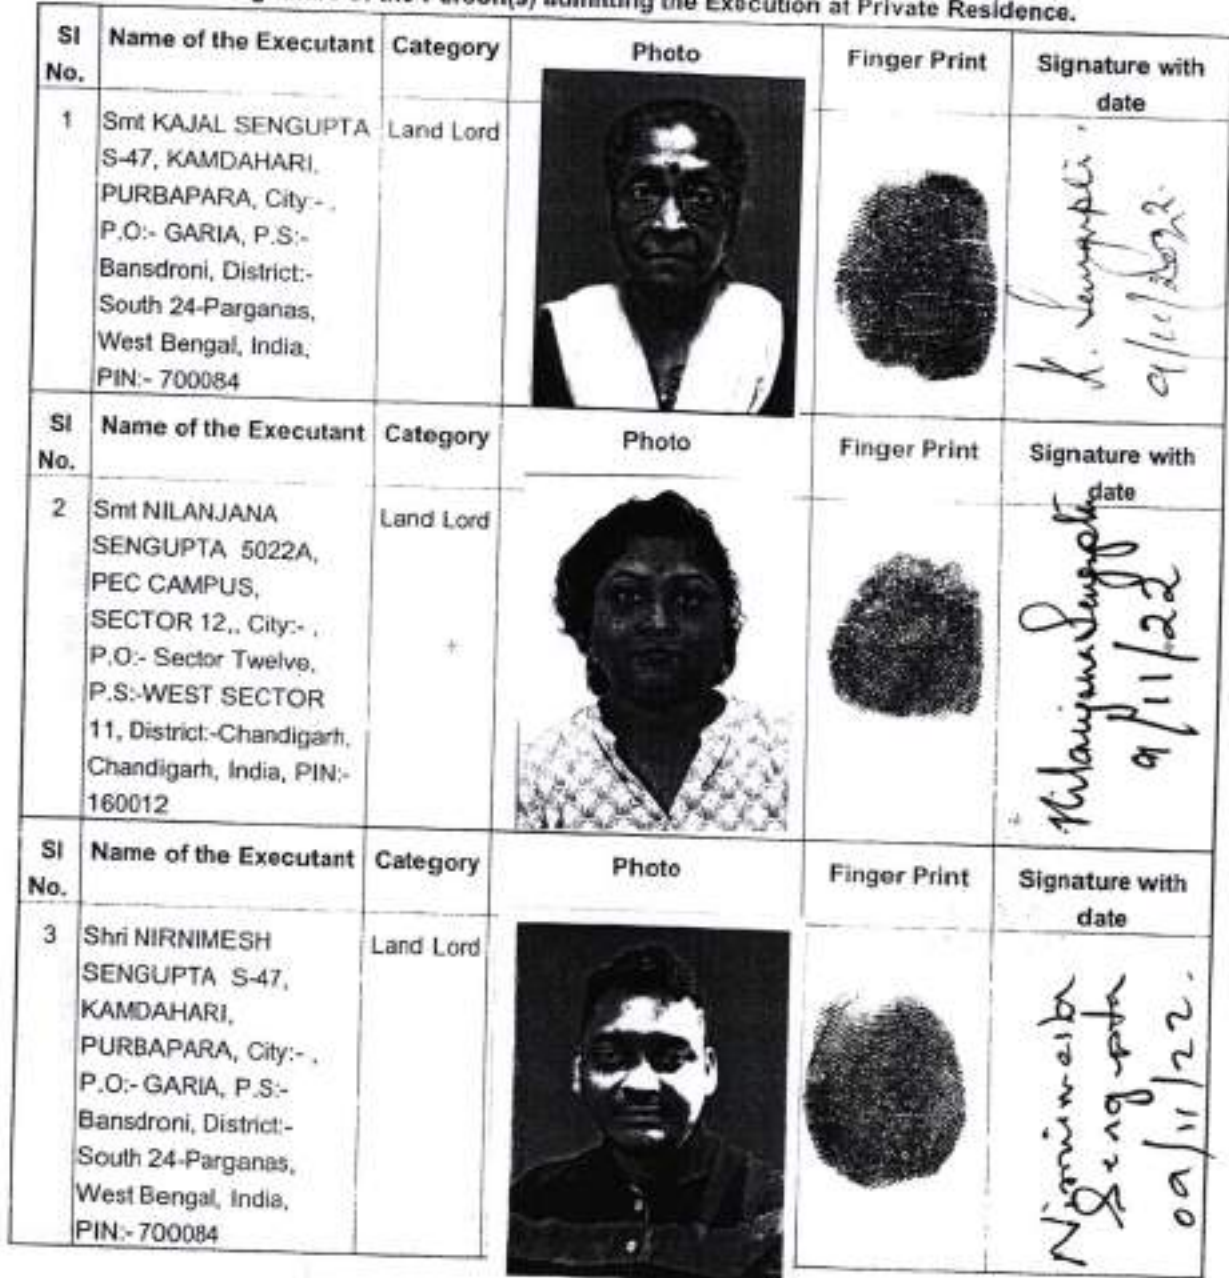 the Person(s) admitting the Execution at Private Residence.
SI No. Name of the Executant Category Photo Finger Print Signature with date
1 Smt KAJAL SENGUPTA Land Lord
S-47, KAMDAHARI,
PURBAPARA, City:- ,
P.O:- GARIA, P.S:-
Bansdroni, District:-
South 24-Parganas,
West Bengal, India,
PIN:- 700084
K. Sengupta.
9/11/2022.
SI No. Name of the Executant Category Photo Finger Print Signature with date
2 Smt NILANJANA Land Lord
SENGUPTA 5022A,
PEC CAMPUS,
SECTOR 12,, City:- ,
P.O:- Sector Twelve,
P.S:-WEST SECTOR
11, District:-Chandigarh,
Chandigarh, India, PIN:-
160012
Nilanjana Sengupta
9/11/22
SI No. Name of the Executant Category Photo Finger Print Signature with date
3 Shri NIRNIMESH Land Lord
SENGUPTA S-47,
KAMDAHARI,
PURBAPARA, City:- ,
P.O:- GARIA, P.S:-
Bansdroni, District:-
South 24-Parganas,
West Bengal, India,
PIN:- 700084
Nirnimesh
Sengupta
09/11/22.